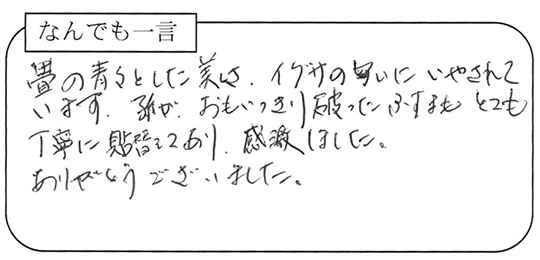 なんでも一言
畳の青々とした美しさ、イグサの匂いにいやされて
います。孫が、おもいっきり破ったふすまも とても
丁寧に貼替えてあり、感激しました。
ありがとうございました。